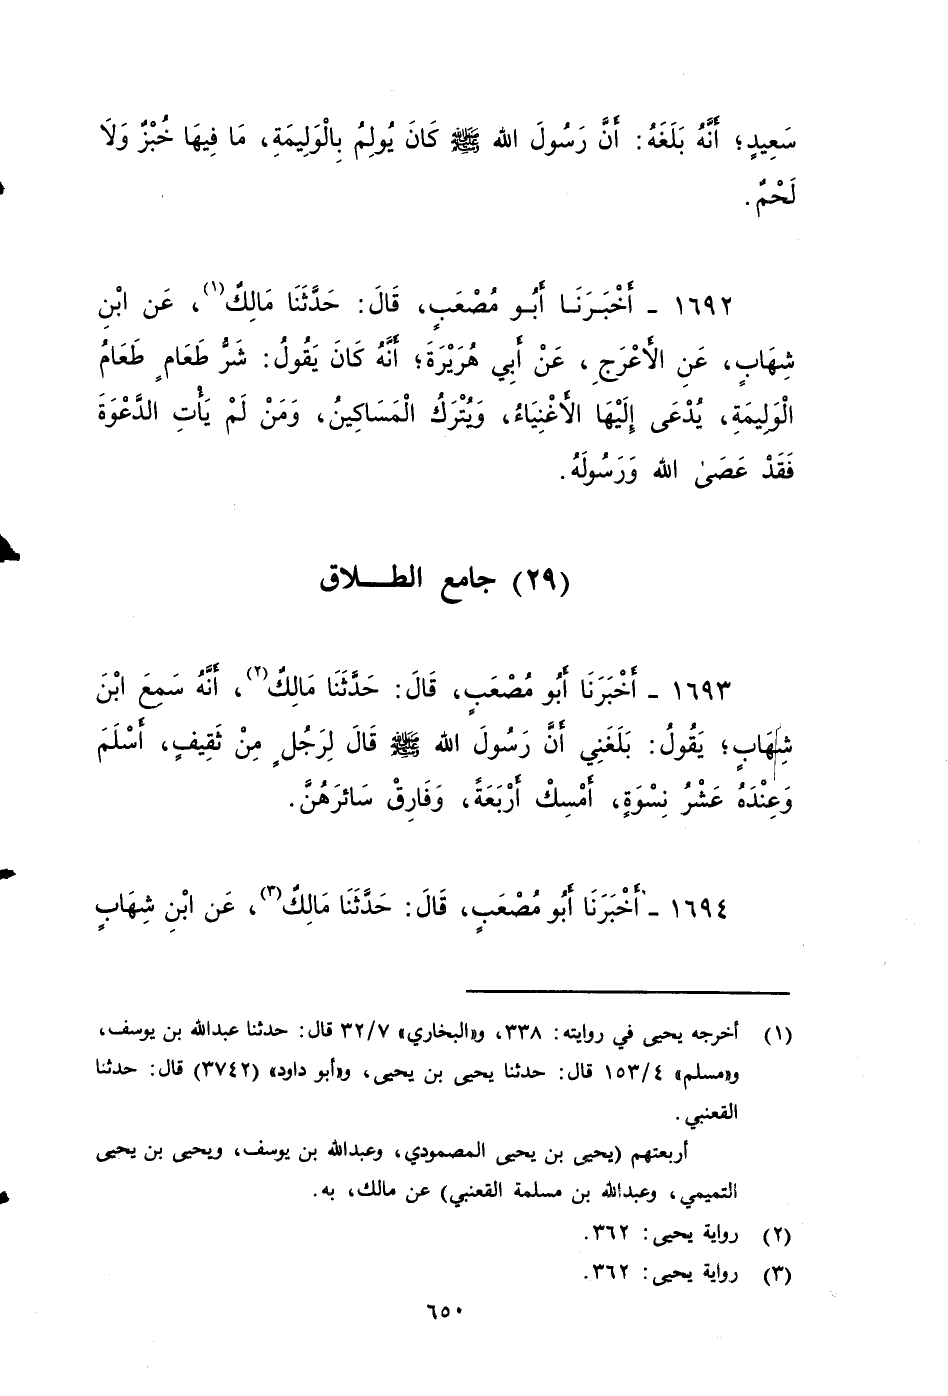 سَعِيدٍ؛ أَنَّهُ بَلَغَهُ: أَنَّ رَسُولَ الله ﷺ كَانَ يُولِمُ بِالْوَلِيمَةِ، مَا فِيهَا خُبْزٌ وَلَا
لَحْمٌ.
١٦٩٢ - أَخْبَرَنَا أَبُو مُصْعَبٍ، قَالَ: حَدَّثَنَا مَالِكٌ(١)، عَن ابْنِ
شِهَابٍ، عَنِ الأَعْرَجِ، عَنْ أَبِي هُرَيْرَةَ؛ أَنَّهُ كَانَ يَقُولُ: شَرُّ طَعَامٍ طَعَامُ
الْوَلِيمَةِ، يُدْعَى إِلَيْهَا الأَغْنِيَاءُ، وَيُتْرَكُ الْمَسَاكِينُ، وَمَنْ لَمْ يَأْتِ الدَّعْوَةَ
فَقَدْ عَصَىٰ الله وَرَسُولَهُ.
(٢٩) جامع الطـــلاق
١٦٩٣ - أَخْبَرَنَا أَبُو مُصْعَبٍ، قَالَ: حَدَّثَنَا مَالِكٌ(٢)، أَنَّهُ سَمِعَ ابْنَ
شِهَابٍ؛ يَقُولُ: بَلَغَنِي أَنَّ رَسُولَ الله ﷺ قَالَ لِرَجُلٍ مِنْ ثَقِيفٍ، أَسْلَمَ
وَعِنْدَهُ عَشْرُ نِسْوَةٍ، أَمْسِكْ أَرْبَعَةً، وَفَارِقْ سَائرَهُنَّ.
١٦٩٤ - أَخْبَرَنَا أَبُو مُصْعَبٍ، قَالَ: حَدَّثَنَا مَالِكٌ(٣)، عَن ابْنِ شِهَابٍ
(١) أخرجه يحيى في روايته: ٣٣٨، و«البخاري» ٣٢/٧ قال: حدثنا عبدالله بن يوسف،
و«مسلم» ١٥٣/٤ قال: حدثنا يحيى بن يحيى، و«أبو داود» (٣٧٤٢) قال: حدثنا
القعنبي.
أربعتهم (يحيى بن يحيى المصمودي، وعبدالله بن يوسف، ويحيى بن يحيى
التميمي، وعبدالله بن مسلمة القعنبي) عن مالك، به.
(٢) رواية يحيى: ٣٦٢.
(٣) رواية يحيى: ٣٦٢.
٦٥٠